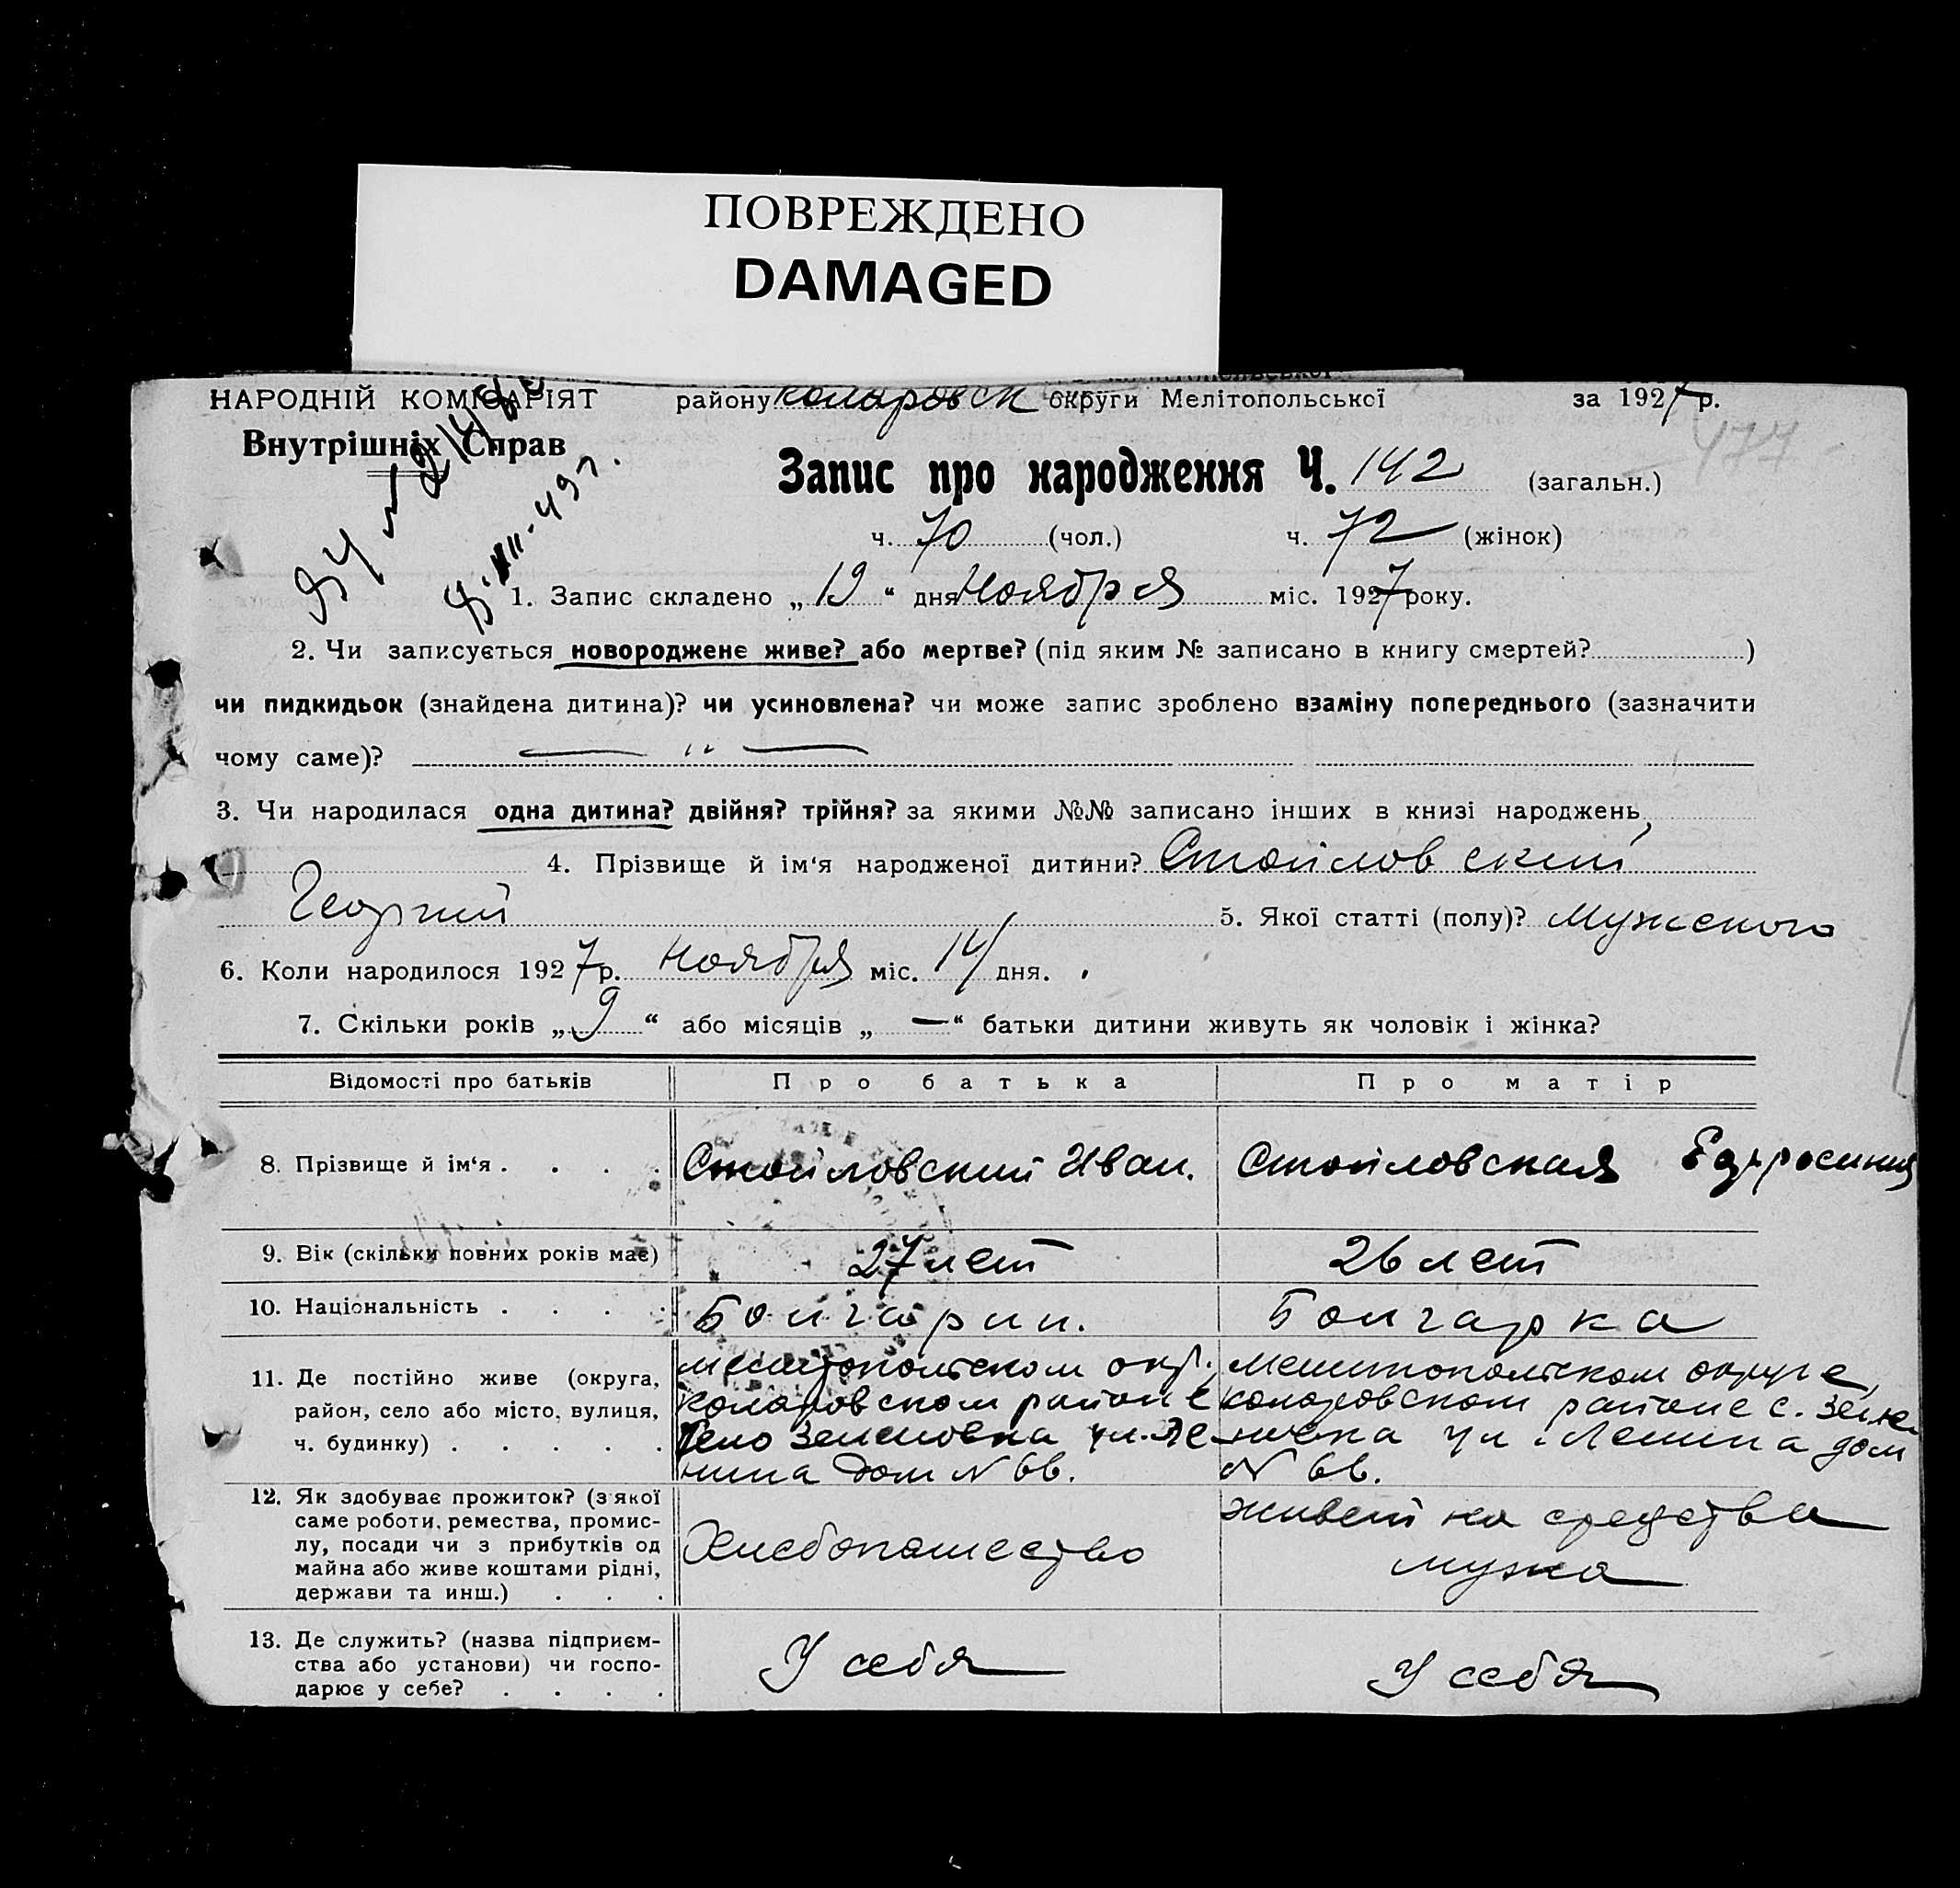 ПОВРЕЖДЕНО
DAMAGED
НАРОДНІЙ КОМІСАРІЯТ району Коларовск округи Мелітопольської за 1927 р.
Внутрішніх Справ
477
Запис про народження Ч. 142 (загальн.)
ч. 70 (чол.) ч. 72 (жінок)
1. Запис складено „19“ дня Ноября міс. 1927 року.
2. Чи записується новороджене живе? або мертве? (під яким № записано в книгу смертей? )
чи пидкидьок (знайдена дитина)? чи усиновлена? чи може запис зроблено взаміну попереднього (зазначити
чому саме)? — " —
3. Чи народилася одна дитина? двійня? трійня? за якими №№ записано інших в книзі народжень,
4. Прізвище й ім‘я народженої дитини? Стойловский
Георгий 5. Якої статті (полу)? Мужского
6. Коли народилося 1927 р. Ноября міс. 14 дня.
7. Скільки років „9“ або місяців „—“ батьки дитини живуть як чоловік і жінка?
Відомості про батьків Про батька Про матір
8. Прізвище й ім‘я . . . . Стойловский Иван. Стойловская Ефросиния
9. Вік (скільки повних років має) 27 лет 26 лет
10. Національність . . . . Болгарин. Болгарка
11. Де постійно живе (округа, Мелитопольском окр., Мелитопольском округе,
район, село або місто, вулиця, Коларовском районе Коларовском районе с. Зеле-
ч. будинку) . . . . . Село Зеленовка ул. Ле- новка ул. Ленина дом
нина дом N 66. N 66.
12. Як здобуває прожиток? (з якої
саме роботи, ремества, промис-
лу, посади чи з прибутків од
майна або живе коштами рідні,
держави та инш.) . . .
Хлебопашество
живет на средства
мужа
13. Де служить? (назва підприєм-
ства або установи) чи госпо-
дарює у себе? . . . .
У себя У себя